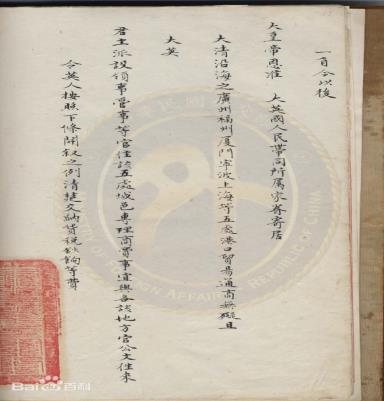 一自今以後
大皇帝恩准 大英國人民帶同所屬家眷寄居
大清沿海之廣州福州厦門寧波上海等五處港口貿易通商無礙且
大英
君主派設領事管事等官住該五處城邑專理商賈事宜與各該地方官公文往來
令英人按照下條開敘之例清楚交納貨稅鈔餉等費
FOREIGN AFFAIRS
Bai 百科